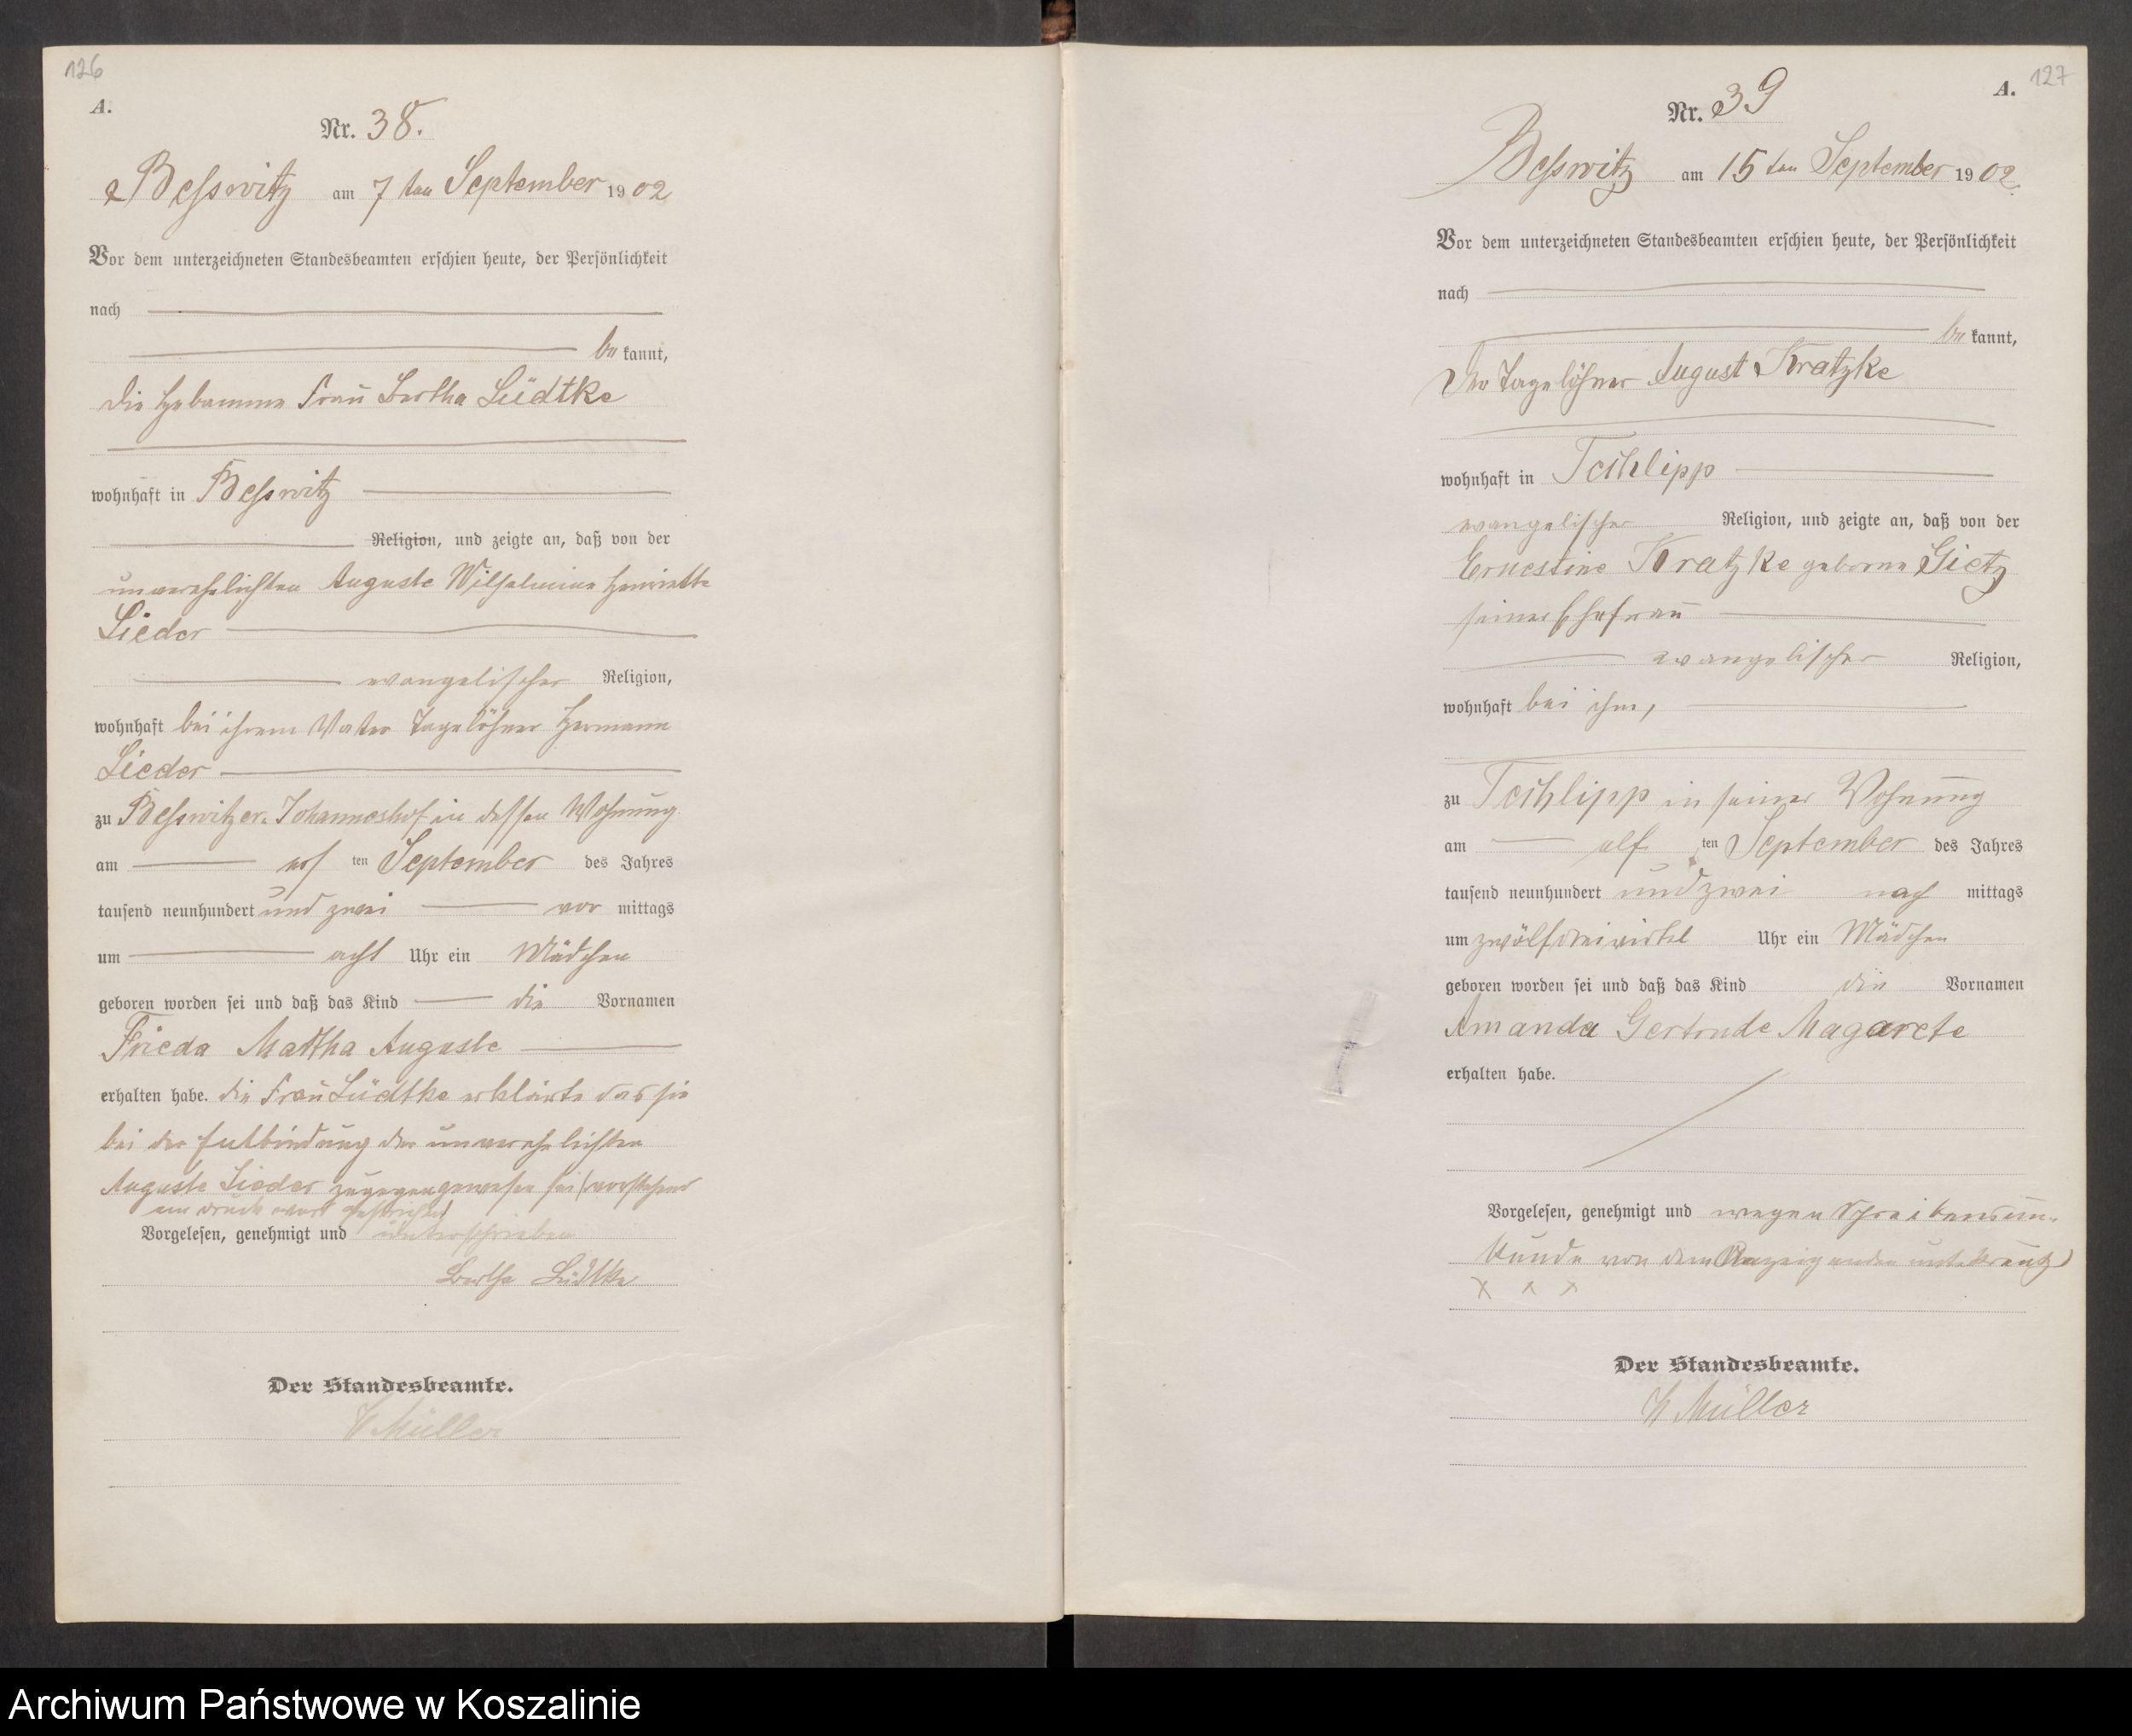 126
A.
Nr. 38.
Beßwitz am 7 ten September 1902
Vor dem unterzeichneten Standesbeamten erschien heute, der Persönlichkeit
nach
be kannt,
die Hebamme Frau Bertha Lüdtke
wohnhaft in Beßwitz
Religion, und zeigte an, daß von der
unverehelichten Auguste Wilhelmine Henriette
Lieder
evangelischer Religion,
wohnhaft bei ihrem Vater Tagelöhner Hermann
Lieder
zu Beßwitzer Johanneshof in dessen Wohnung
am ten September des Jahres
tausend neunhundert und zwei vor mittags
um acht Uhr ein Mädchen
geboren worden sei und daß das Kind die Vornamen
Frieda Martha Auguste
erhalten habe. die Frau Lüdtke erklärte das sie
bei der Entbindung der unverehelichten
Auguste Lieder zugegen gewesen sei (vorstehend
ein Druckwort gestrichen)
Vorgelesen, genehmigt und unterschrieben
Bertha Lüdtke
Der Standesbeamte.
Müller
127
A.
Nr. 39
Beßwitz am 15 ten September 1902.
Vor dem unterzeichneten Standesbeamten erschien heute, der Persönlichkeit
nach
be kannt,
Der Tagelöhner August Kratzke
wohnhaft in Techlipp
evangelischer Religion, und zeigte an, daß von der
Ernestine Kratzke geborne Gietz
seiner Ehefrau
evangelischer Religion,
wohnhaft bei ihm,
zu Techlipp in seiner Wohnung
am elf ten September des Jahres
tausend neunhundert und zwei nach mittags
um zwölfdreiviertel Uhr ein Mädchen
geboren worden sei und daß das Kind die Vornamen
Amanda Gertrude Magarete
erhalten habe.
Vorgelesen, genehmigt und wegen Schreibensun-
kunde von dem Anzeigenden unterkreuzt
x x x
Der Standesbeamte.
Müller
Archiwum Państwowe w Koszalinie